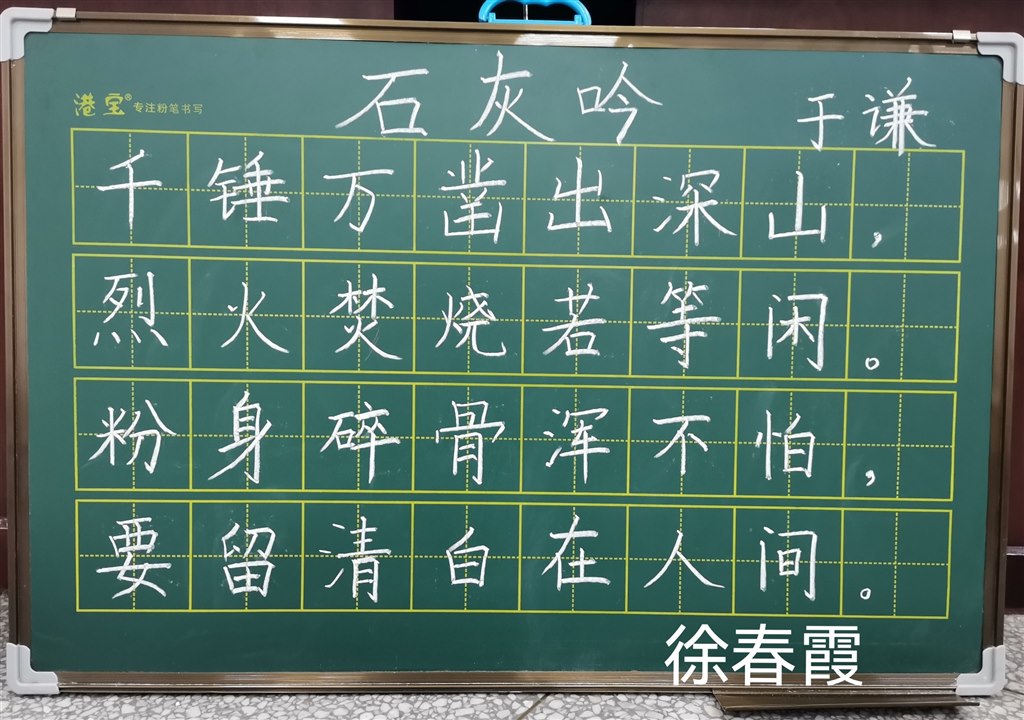 石灰吟 于谦
港宝® 专注粉笔书写
千锤万凿出深山，
烈火焚烧若等闲。
粉身碎骨浑不怕，
要留清白在人间。
徐春霞